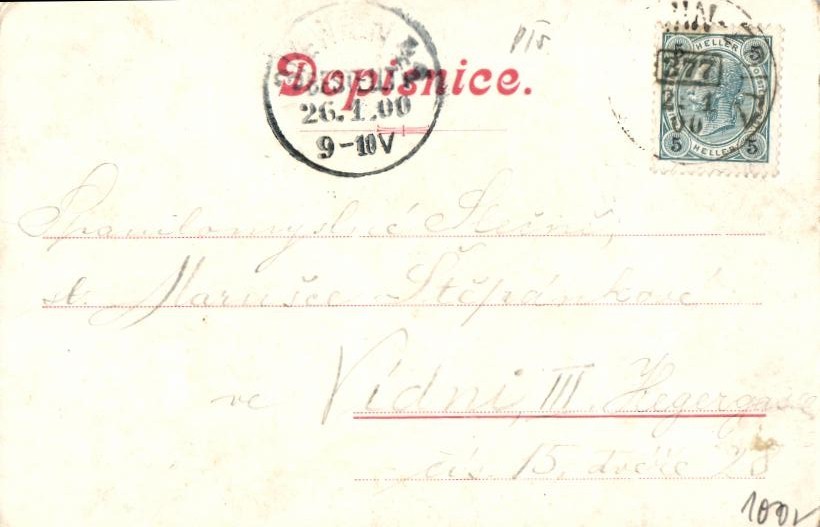 Dopisnice.
26.1.00
9-10V
5 HELLER 5
277
00
5 HELLER 5
Slečně,
sl. Marušce Štěpánkové
ve Vídni, III. Hegergasse
čís. 15. dveře 28
100,-